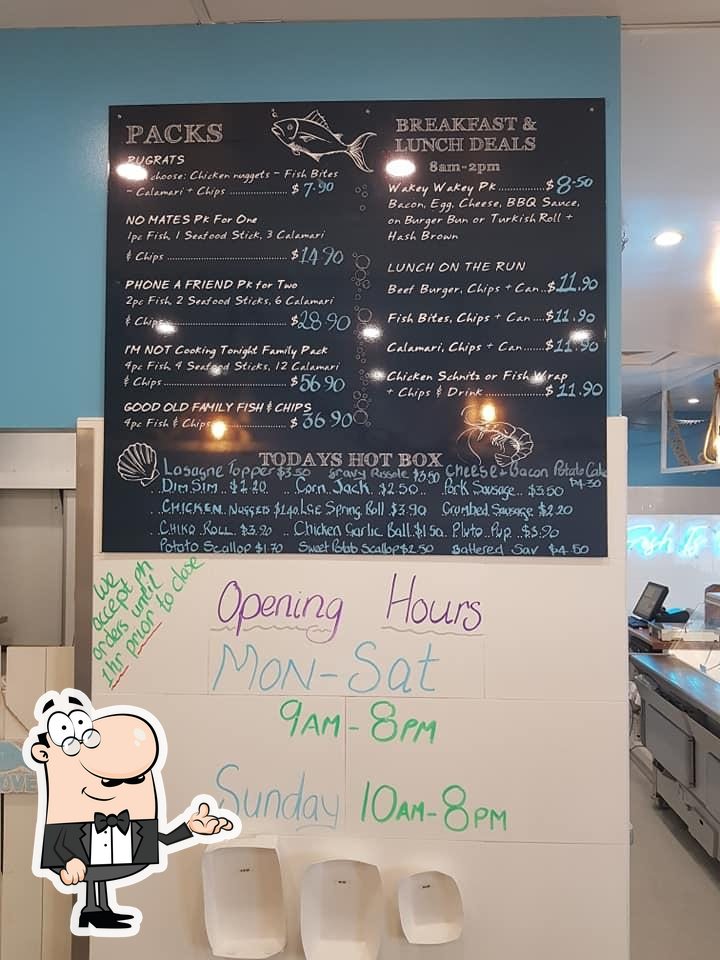 PACKS
RUGRATS
choose: Chicken nuggets - Fish Bites
- Calamari + Chips .................. $ 7.90
NO MATES Pk For One
1pc Fish, 1 Seafood Stick, 3 Calamari
& Chips .................. $14.90
PHONE A FRIEND Pk for Two
2pc Fish, 2 Seafood Sticks, 6 Calamari
& Chips .................. $28.90
I'M NOT Cooking Tonight Family Pack
4pc Fish, 4 Seafood Sticks, 12 Calamari
& Chips .................. $56.90
GOOD OLD FAMILY FISH & CHIPS
4pc Fish & Chips .................. $ 36.90
BREAKFAST &
LUNCH DEALS
8am-2pm
Wakey Wakey Pk............$8.50
Bacon, Egg, Cheese, BBQ Sauce,
on Burger Bun or Turkish Roll +
Hash Brown
LUNCH ON THE RUN
Beef Burger, Chips + Can..$11.90
Fish Bites, Chips + Can....$11.90
Calamari, Chips + Can......$11.90
Chicken Schnitz or Fish Wrap
+ Chips & Drink................$ 11.90
TODAYS HOT BOX
Lasagne Topper $3.50 Gravy Rissole $3.50 Cheese + Bacon Potato Cake $4.30
Dim Sim.. $1.20 .. Corn Jack. $2.50.. Pork Sausage.. $3.50
CHICKEN NUGGED $1.40 LGE Spring Roll $3.90 Crumbed Sausage $2.20
CHIKO ROLL. $3.90 .. Chicken Garlic Ball $1.50. Pluto Pup. ..$3.90
Potato Scallop $1.70 Sweet Potato Scallop $2.50 Battered Sav $4.50
We
accept ph
orders until
1hr prior to close
Opening Hours
MON-Sat
9AM-8PM
Sunday 10AM-8PM